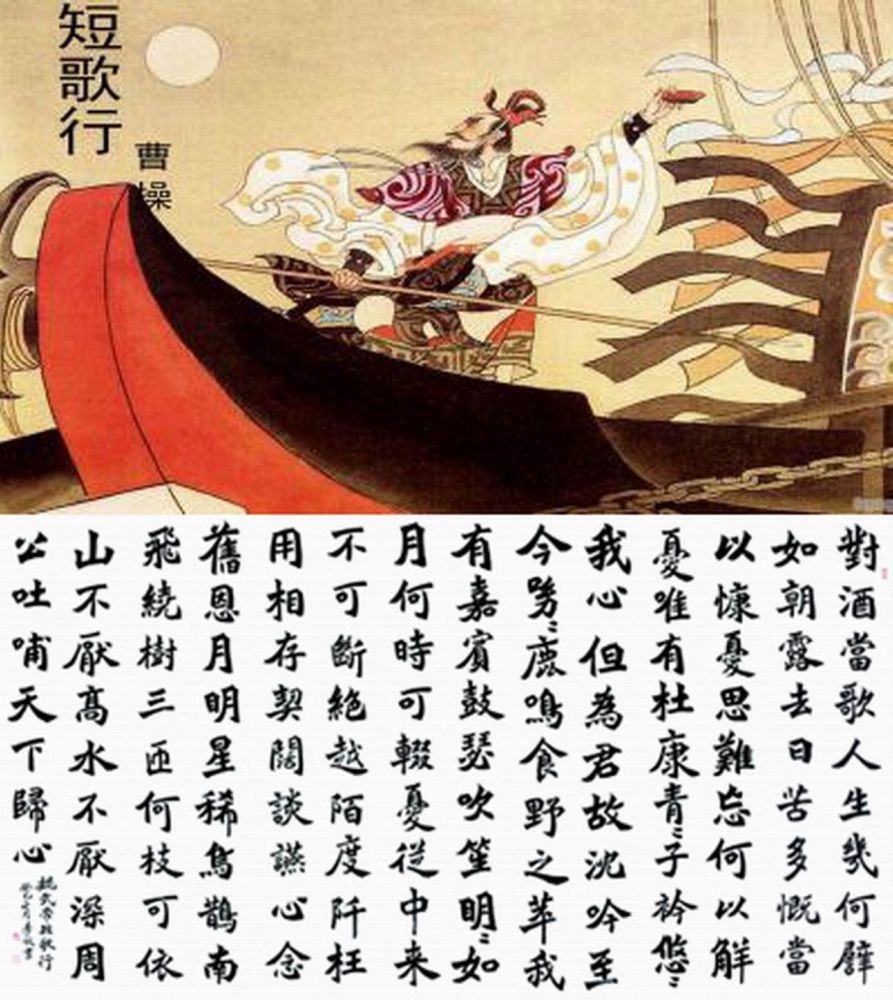 短歌行
曹操
對酒當歌人生幾何譬
如朝露去日苦多慨當
以慷憂思難忘何以解
憂唯有杜康青〻子衿悠〻
我心但為君故沈吟至
今呦〻鹿鳴食野之苹我
有嘉賓鼓瑟吹笙明〻如
月何時可輟憂從中来
不可斷絶越陌度阡枉
用相存契闊談讌心念
舊恩月明星稀烏鵲南
飛繞樹三匝何枝可依
山不厭高水不厭深周
公吐哺天下歸心
魏武帝短歌行